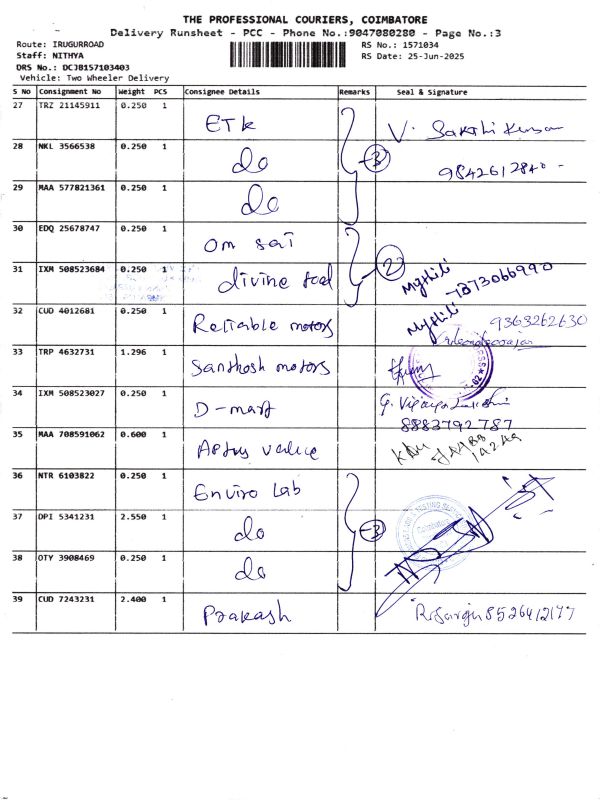 THE PROFESSIONAL COURIERS, COIMBATORE
Delivery Runsheet - PCC - Phone No.:9047080280 - Page No.:3
Route: IRUGURROAD
RS No.: 1571034
Staff: NITHYA
RS Date: 25-Jun-2025
DRS No.: DCJB157103403
Vehicle: Two Wheeler Delivery
S No Consignment No Weight PCS Consignee Details Remarks Seal & Signature
27 TRZ 21145911 0.250 1 ETK V. Sakthi Kumar
28 NKL 3566538 0.250 1 do 3 9842612840
29 MAA 577821361 0.250 1 do
30 EDQ 25678747 0.250 1 Om sai
31 IXM 508523684 0.250 1 divine 2 Mythili 7373066990
32 CUD 4012681 0.250 1 Reliable motors Mythili 9363262630
33 TRP 4632731 1.296 1 Santhosh motors
34 IXM 508523027 0.250 1 D-mart G. Vijaya Lakshmi
8883792787
35 MAA 708591062 0.600 1 Aptus value
36 NTR 6103822 0.250 1 Enviro Lab
37 DPI 5341231 2.550 1 do 3
38 OTY 3908469 0.250 1 do
39 CUD 7243231 2.400 1 Prakash